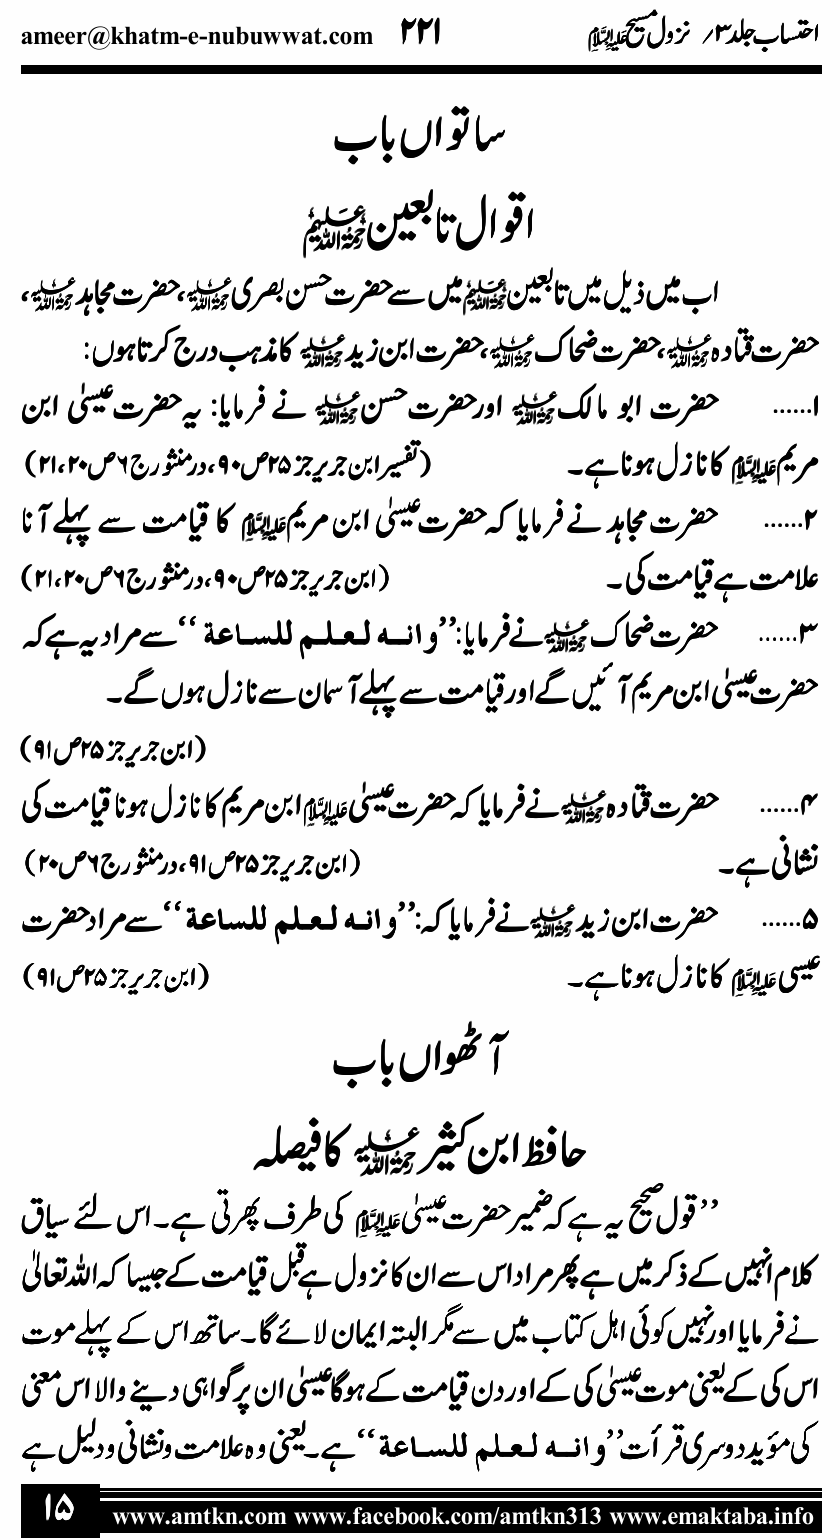 احتساب جلد ۳/ نزول مسیح علیہ السلام ۲۲۱ ameer@khatm-e-nubuwwat.com
ساتواں باب
اقوال تابعین رحمۃ اللہ علیہم
اب میں ذیل میں تابعین رحمۃ اللہ علیہم میں سے حضرت حسن بصری رحمۃ اللہ علیہ، حضرت مجاہد رحمۃ اللہ علیہ،
حضرت قتادہ رحمۃ اللہ علیہ، حضرت ضحاک رحمۃ اللہ علیہ، حضرت ابن زید رحمۃ اللہ علیہ کا مذہب درج کرتا ہوں:
۱...... حضرت ابو مالک رحمۃ اللہ علیہ اور حضرت حسن رحمۃ اللہ علیہ نے فرمایا: یہ حضرت عیسیٰ ابن
مریم علیہ السلام کا نازل ہونا ہے۔ (تفسیر ابن جریر جز ۲۵ ص ۹۰، درمنثور ج ۶ ص ۲۰، ۲۱)
۲...... حضرت مجاہد نے فرمایا کہ حضرت عیسیٰ ابن مریم علیہ السلام کا قیامت سے پہلے آنا
علامت ہے قیامت کی۔ (ابن جریر جز ۲۵ ص ۹۰، درمنثور ج ۶ ص ۲۰، ۲۱)
۳...... حضرت ضحاک رحمۃ اللہ علیہ نے فرمایا: ’’وانه لعلم للساعة‘‘ سے مراد یہ ہے کہ
حضرت عیسیٰ ابن مریم آئیں گے اور قیامت سے پہلے آسمان سے نازل ہوں گے۔
(ابن جریر جز ۲۵ ص ۹۱)
۴...... حضرت قتادہ رحمۃ اللہ علیہ نے فرمایا کہ حضرت عیسیٰ علیہ السلام ابن مریم کا نازل ہونا قیامت کی
نشانی ہے۔ (ابن جریر جز ۲۵ ص ۹۱، درمنثور ج ۶ ص ۲۰)
۵...... حضرت ابن زید رحمۃ اللہ علیہ نے فرمایا کہ: ’’وانه لعلم للساعة‘‘ سے مراد حضرت
عیسی علیہ السلام کا نازل ہونا ہے۔ (ابن جریر جز ۲۵ ص ۹۱)
آٹھواں باب
حافظ ابن کثیر رحمۃ اللہ علیہ کا فیصلہ
’’قول صحیح یہ ہے کہ ضمیر حضرت عیسیٰ علیہ السلام کی طرف پھرتی ہے۔ اس لئے سیاق
کلام انہیں کے ذکر میں ہے پھر مراد اس سے ان کا نزول ہے قبل قیامت کے جیسا کہ اللہ تعالیٰ
نے فرمایا اور نہیں کوئی اہل کتاب میں سے مگر البتہ ایمان لائے گا۔ ساتھ اس کے پہلے موت
اس کی کے یعنی موت عیسیٰ کی کے اور دن قیامت کے ہوگا عیسیٰ ان پر گواہی دینے والا اس معنی
کی مؤید دوسری قرأت ’’وانه لعلم للساعة‘‘ ہے۔ یعنی وہ علامت ونشانی ودلیل ہے
۱۵ www.amtkn.com www.facebook.com/amtkn313 www.emaktaba.info